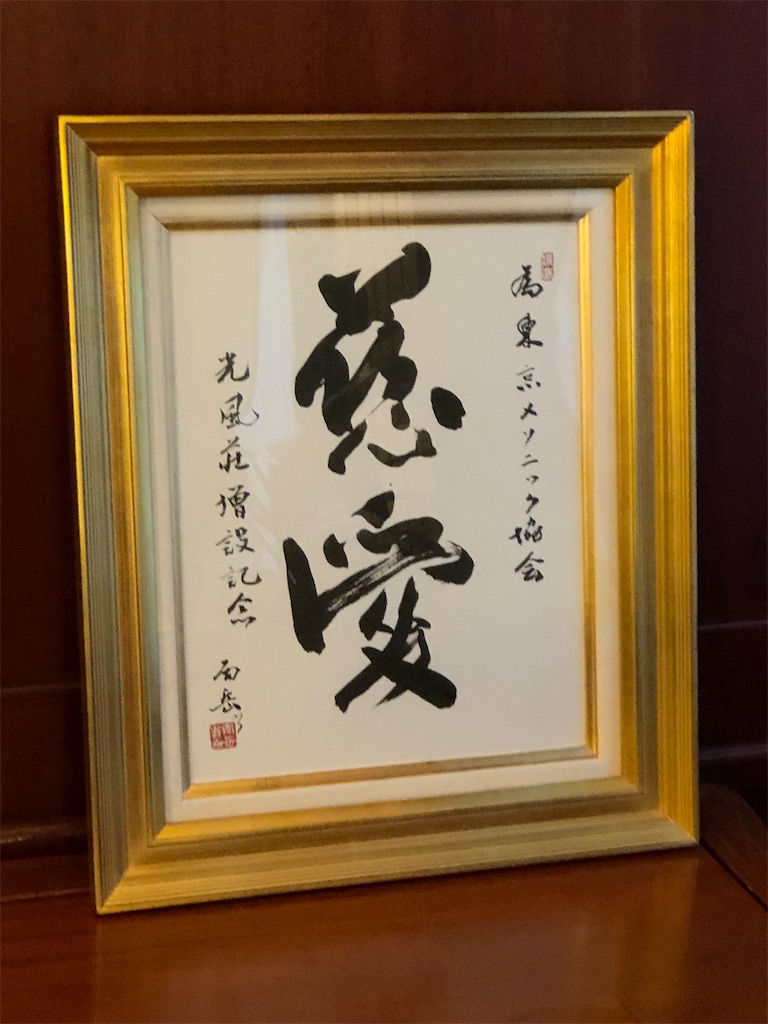 為東京メソニック協会
慈愛
光風荘増設記念